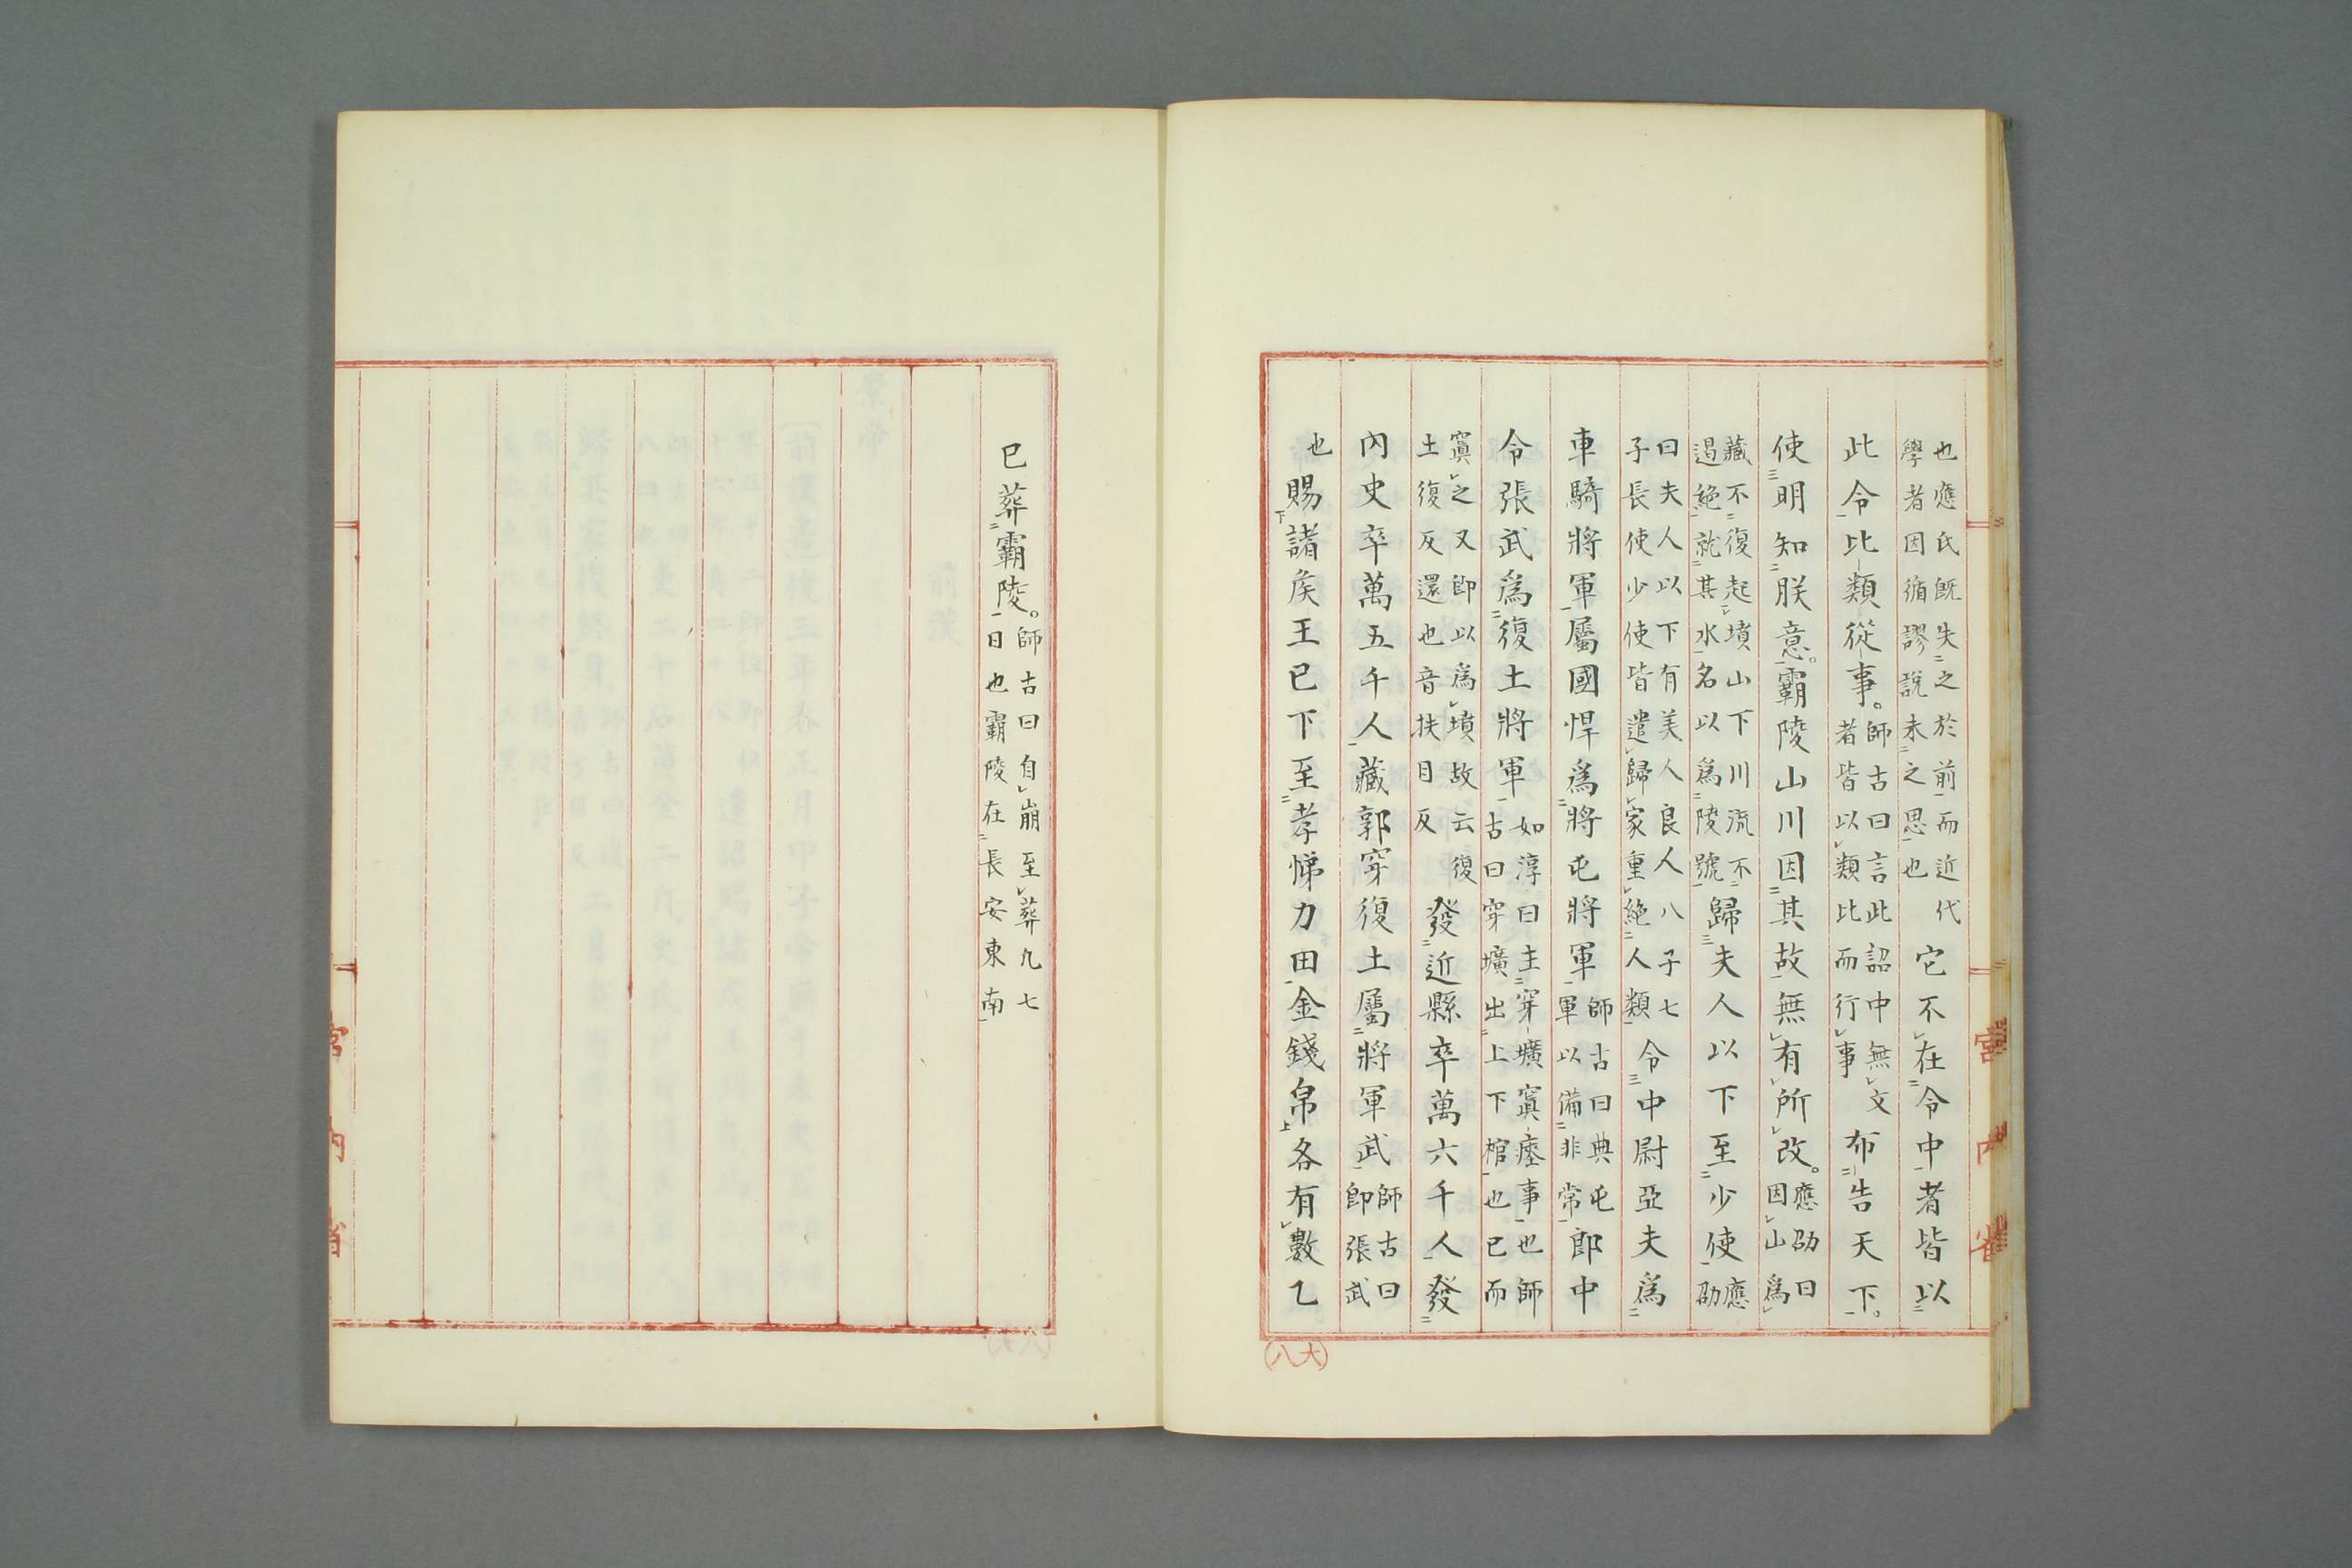 也應氏既失之於前而近代學者因循謬說未之思也它不在令中者皆以
此令比類從事。師古曰言此詔中無文者皆以類比而行事布告天下。
使明知朕意。霸陵山川因其故無有所改。應劭曰因山爲
藏不復起墳山下川流不遏絕就其水名以爲陵號歸夫人以下至少使應劭
曰夫人以下有美人良人八子七子長使少使皆遣歸家重絕人類令中尉亞夫爲
車騎將軍屬國悍爲將屯將軍師古曰典屯軍以備非常郎中
令張武爲復土將軍如淳曰主穿壙窴瘞事也師古曰穿壙出上下棺也已而
窴之又即以爲墳故云復土復反還也音扶目反發近縣卒萬六千人發
內史卒萬五千人藏郭穿復土屬將軍武師古曰即張武
也賜諸侯王已下至孝悌力田金錢帛各有數乙
(八大)
宮內省
巳葬霸陵。師古曰自崩至葬凡七日也霸陵在長安東南
宮內省